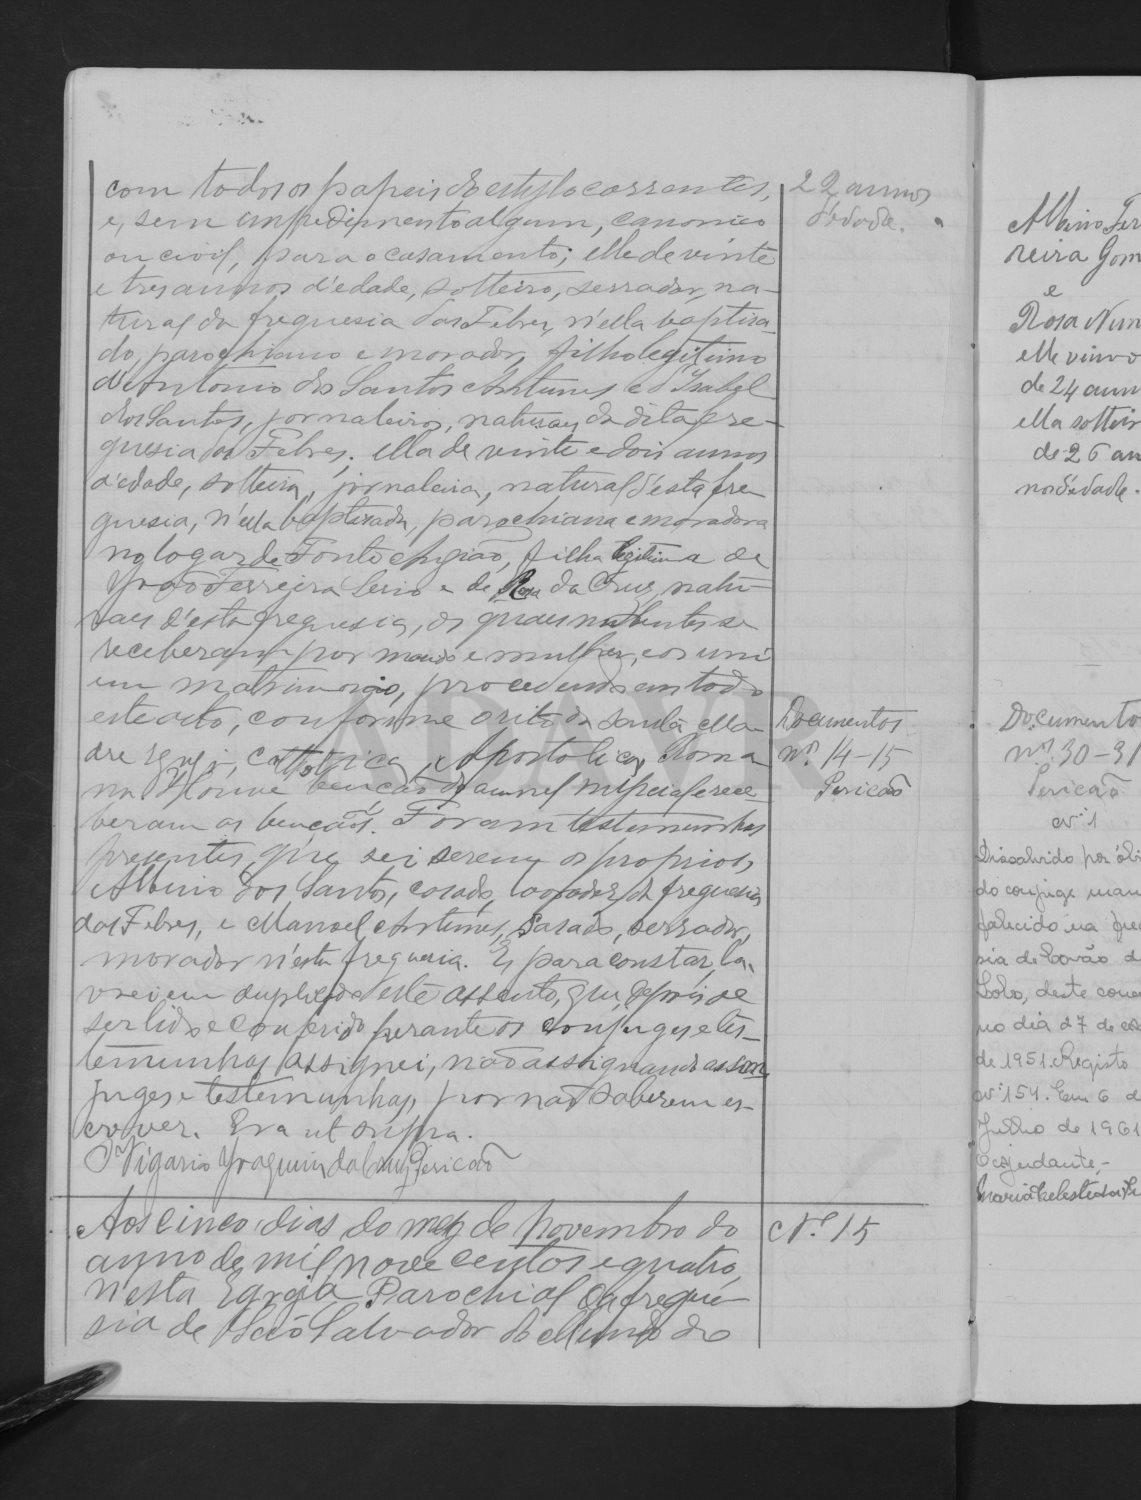 com todos os papeis do estylo correntes,
e, sem impedimento algum, canonico
ou civil, para o casamento; elle de vinte
e tres annos d'edade, solteiro, serrador, na-
tural da freguesia das Febres, n'ella baptisa-
do, parochiano e morador, filho legitimo
d'Antonio dos Santos Antunes e d'Isabel
dos Santos, jornaleiros, naturaes da dita fre-
guesia das Febres; ella de vinte e dois annos
d'edade, solteira, jornaleira, natural d'esta fre
guesia, n'ella baptisada, parochiana e moradora
no logar de Fonte, filha legitima de
João Ferreira e de Rosa da Cruz, natu-
raes d'esta freguesia, os quaes nubentes se
receberam por marido e mulher, e os uni
em matrimonio, procedendo em todo
este acto, conforme o rito da Santa Ma-
dre Egreja, Catholica, Apostolica, Roma
na. Houve benção nupcial e rece-
beram as bençãos. Foram testemunhas
presentes, que sei serem os proprios,
Albino dos Santos, casado, lavrador, da freguesia
das Febres, e Manoel Antunes, casado, serrador,
morador n'esta freguesia. E para constar, la-
vrei em duplicado este assento, que, depois de
ser lido e conferido perante os conjuges e tes-
temunhas, assignei, não assignando os con-
juges e testemunhas, por não saberem es-
crever. Era ut supra.
O Vigario Joaquim da Cruz Pericão
22 annos
d'edade.
Documentos
nº 14-15
Pericão
Aos cinco dias do mez de Novembro do
anno de mil nove centos e quatro,
n'esta Egreja Parochial da fregue-
sia de São Salvador do
Nº 15
Albino Fer
reira Gom
e
Rosa Nun
elle viuvo
de 24 ann
ella solteir
de 26 an
nos d'edade.
Documento
nº 30-31
Pericão
Nº 1
Dissolvido por óbi
do conjuge mari
falecido na fre
sia de Covão d
Lobo, deste conc
no dia 27 de
de 1951. Registo
nº 154. Em 6 d
Julho de 1961
O ajudante,-
Maria Celeste
ADAVR